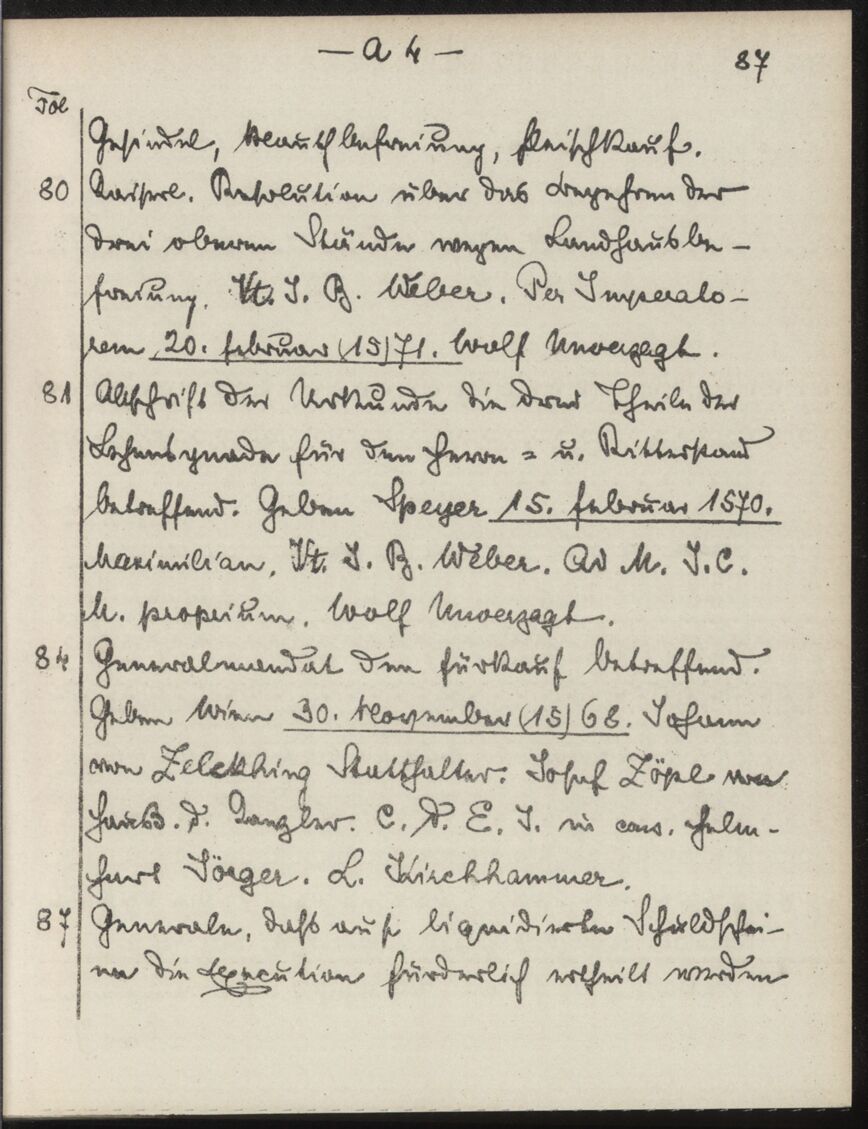 — A 4 —
87
Fol
Gesindel, Mauthbefreiung, Fleischkauf.
80 Kaiserl. Resolution über das Begehren der
drei oberen Stände wegen Landhausbe-
freiung. Vt. J. B. Weber. Per Imperato-
rem 20. Februar (15)71. Wolf Unverzagt.
81 Abschrift der Urkunde die drei Theile der
Lehensgnade für den Herrn= u. Ritterstand
betreffend. Geben Speyer 15. Februar 1570.
Maximilian. Vt. J. B. Weber. Ad M. I. C.
M. proprium. Wolf Unverzagt.
84 Generalmandat den Fürkauf betreffend.
Geben Wien 30. November (15)68. Johann
von Zelckhing Statthalter. Josef Zöpl von
Hauß. d. Kanzler. C. D. E. I. in cons. Helm-
hart Jörger. L. Kirchhammer.
87 Generale, daß auf liquidierte Schuldschei-
ne die Execution fürderlich ertheilt werden